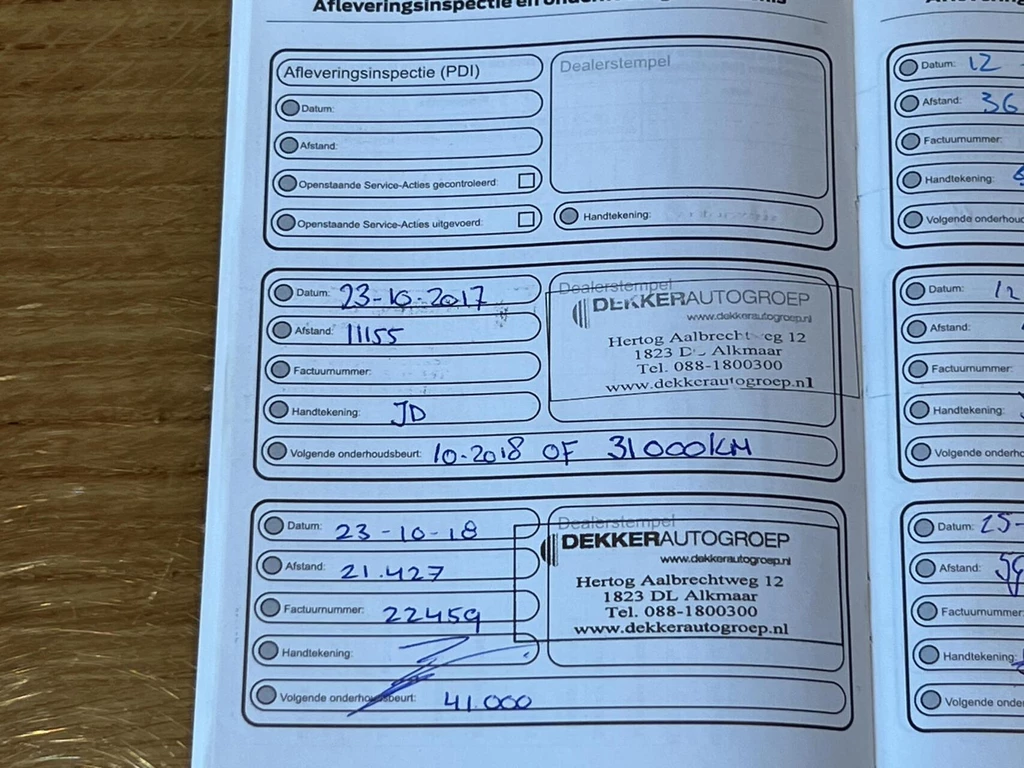 Afleveringsinspectie en
Afleveringsinspectie (PDI)
Dealerstempel
Datum:
Afstand:
Openstaande Service-Acties gecontroleerd:
Openstaande Service-Acties uitgevoerd:
Handtekening:
Datum: 23-10-2017
Dealerstempel
DEKKERAUTOGROEP
www.dekkerautogroep.nl
Hertog Aalbrechtweg 12
1823 DL Alkmaar
Tel. 088-1800300
www.dekkerautogroep.nl
Afstand: 11155
Factuurnummer:
Handtekening: JD
Volgende onderhoudsbeurt: 10-2018 OF 31000KM
Datum: 23-10-18
Dealerstempel
DEKKERAUTOGROEP
www.dekkerautogroep.nl
Hertog Aalbrechtweg 12
1823 DL Alkmaar
Tel. 088-1800300
www.dekkerautogroep.nl
Afstand: 21.427
Factuurnummer: 22459
Handtekening:
Volgende onderhoudsbeurt: 41.000
Datum: 12
Afstand: 36
Factuurnummer:
Handtekening:
Volgende
Datum: 12
Afstand:
Factuurnummer:
Handtekening:
Volgende
Datum: 25-
Afstand:
Factuurnummer:
Handtekening:
Volgende